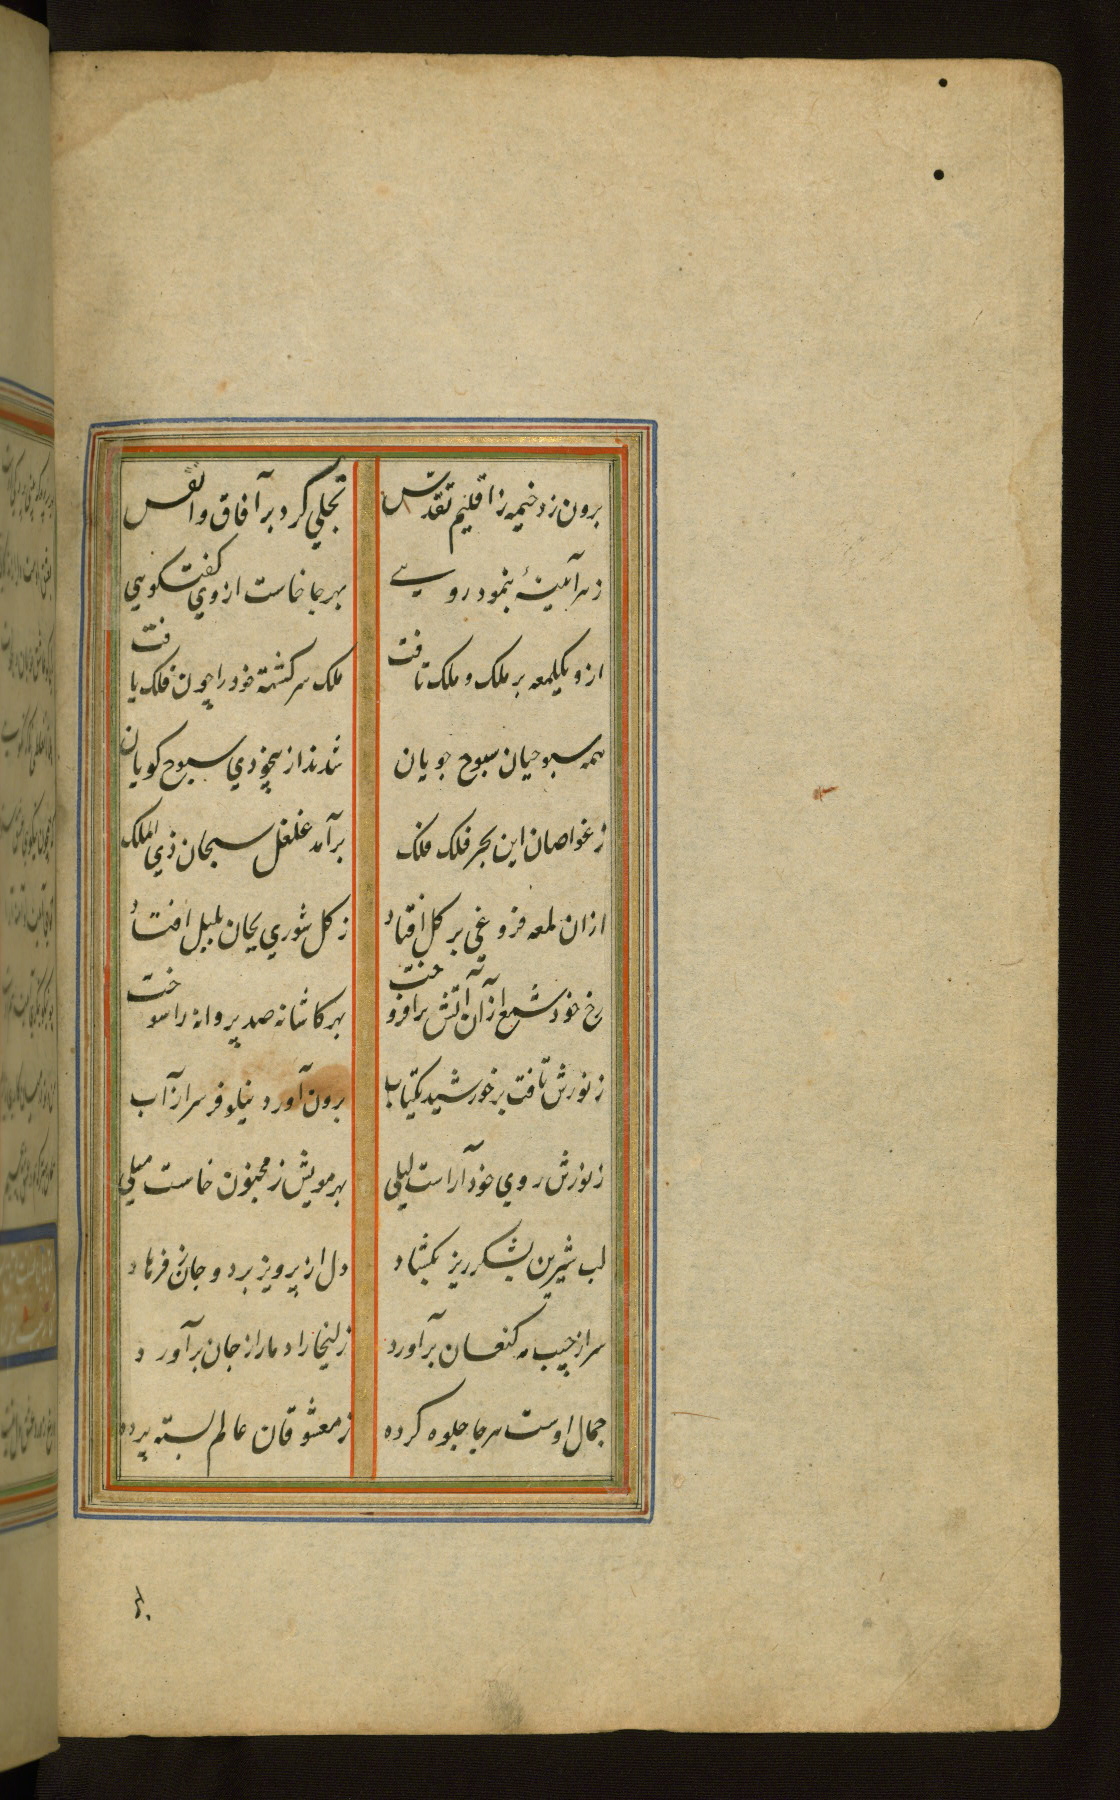 برون زد خیمه ز اقلیم تقدس تجلي كرد بر آفاق و انفس
ز هر آئینهٔ بنمود رويے بهر جا خاست از وي كفت كويي
ازو یکلمعه بر ملک و ملک تافت ملک سر کشته خود را چون فلک یافت
همه سبوحیان سبوح جویان شدند از بیخودي سبوح کویان
ز غواصان این بحر فلک فلک برآمد غلغل سبحان ذي الملک
ازان لمعه فروغی بر کل افتاد ز کل شوري بجان بلبل افتاد
رخ خود شمع از آن آتش برافروخت بهر کاشانه صد پروانه را سوخت
ز نورش تافت بر خورشید یکتاب برون آورد نیلوفر سر از آب
ز نورش روي خود آراست لیلی بهر مویش ز مجنون خاست میلي
لب شیرین بشکر ریز بکشاد دل از پرویز برد و جان ز فرهاد
سر از جیب مه کنعان برآورد زلیخا را دمار از جان برآورد
جمال اوست هر جا جلوه کرده ز معشوقان عالم بسته پرده